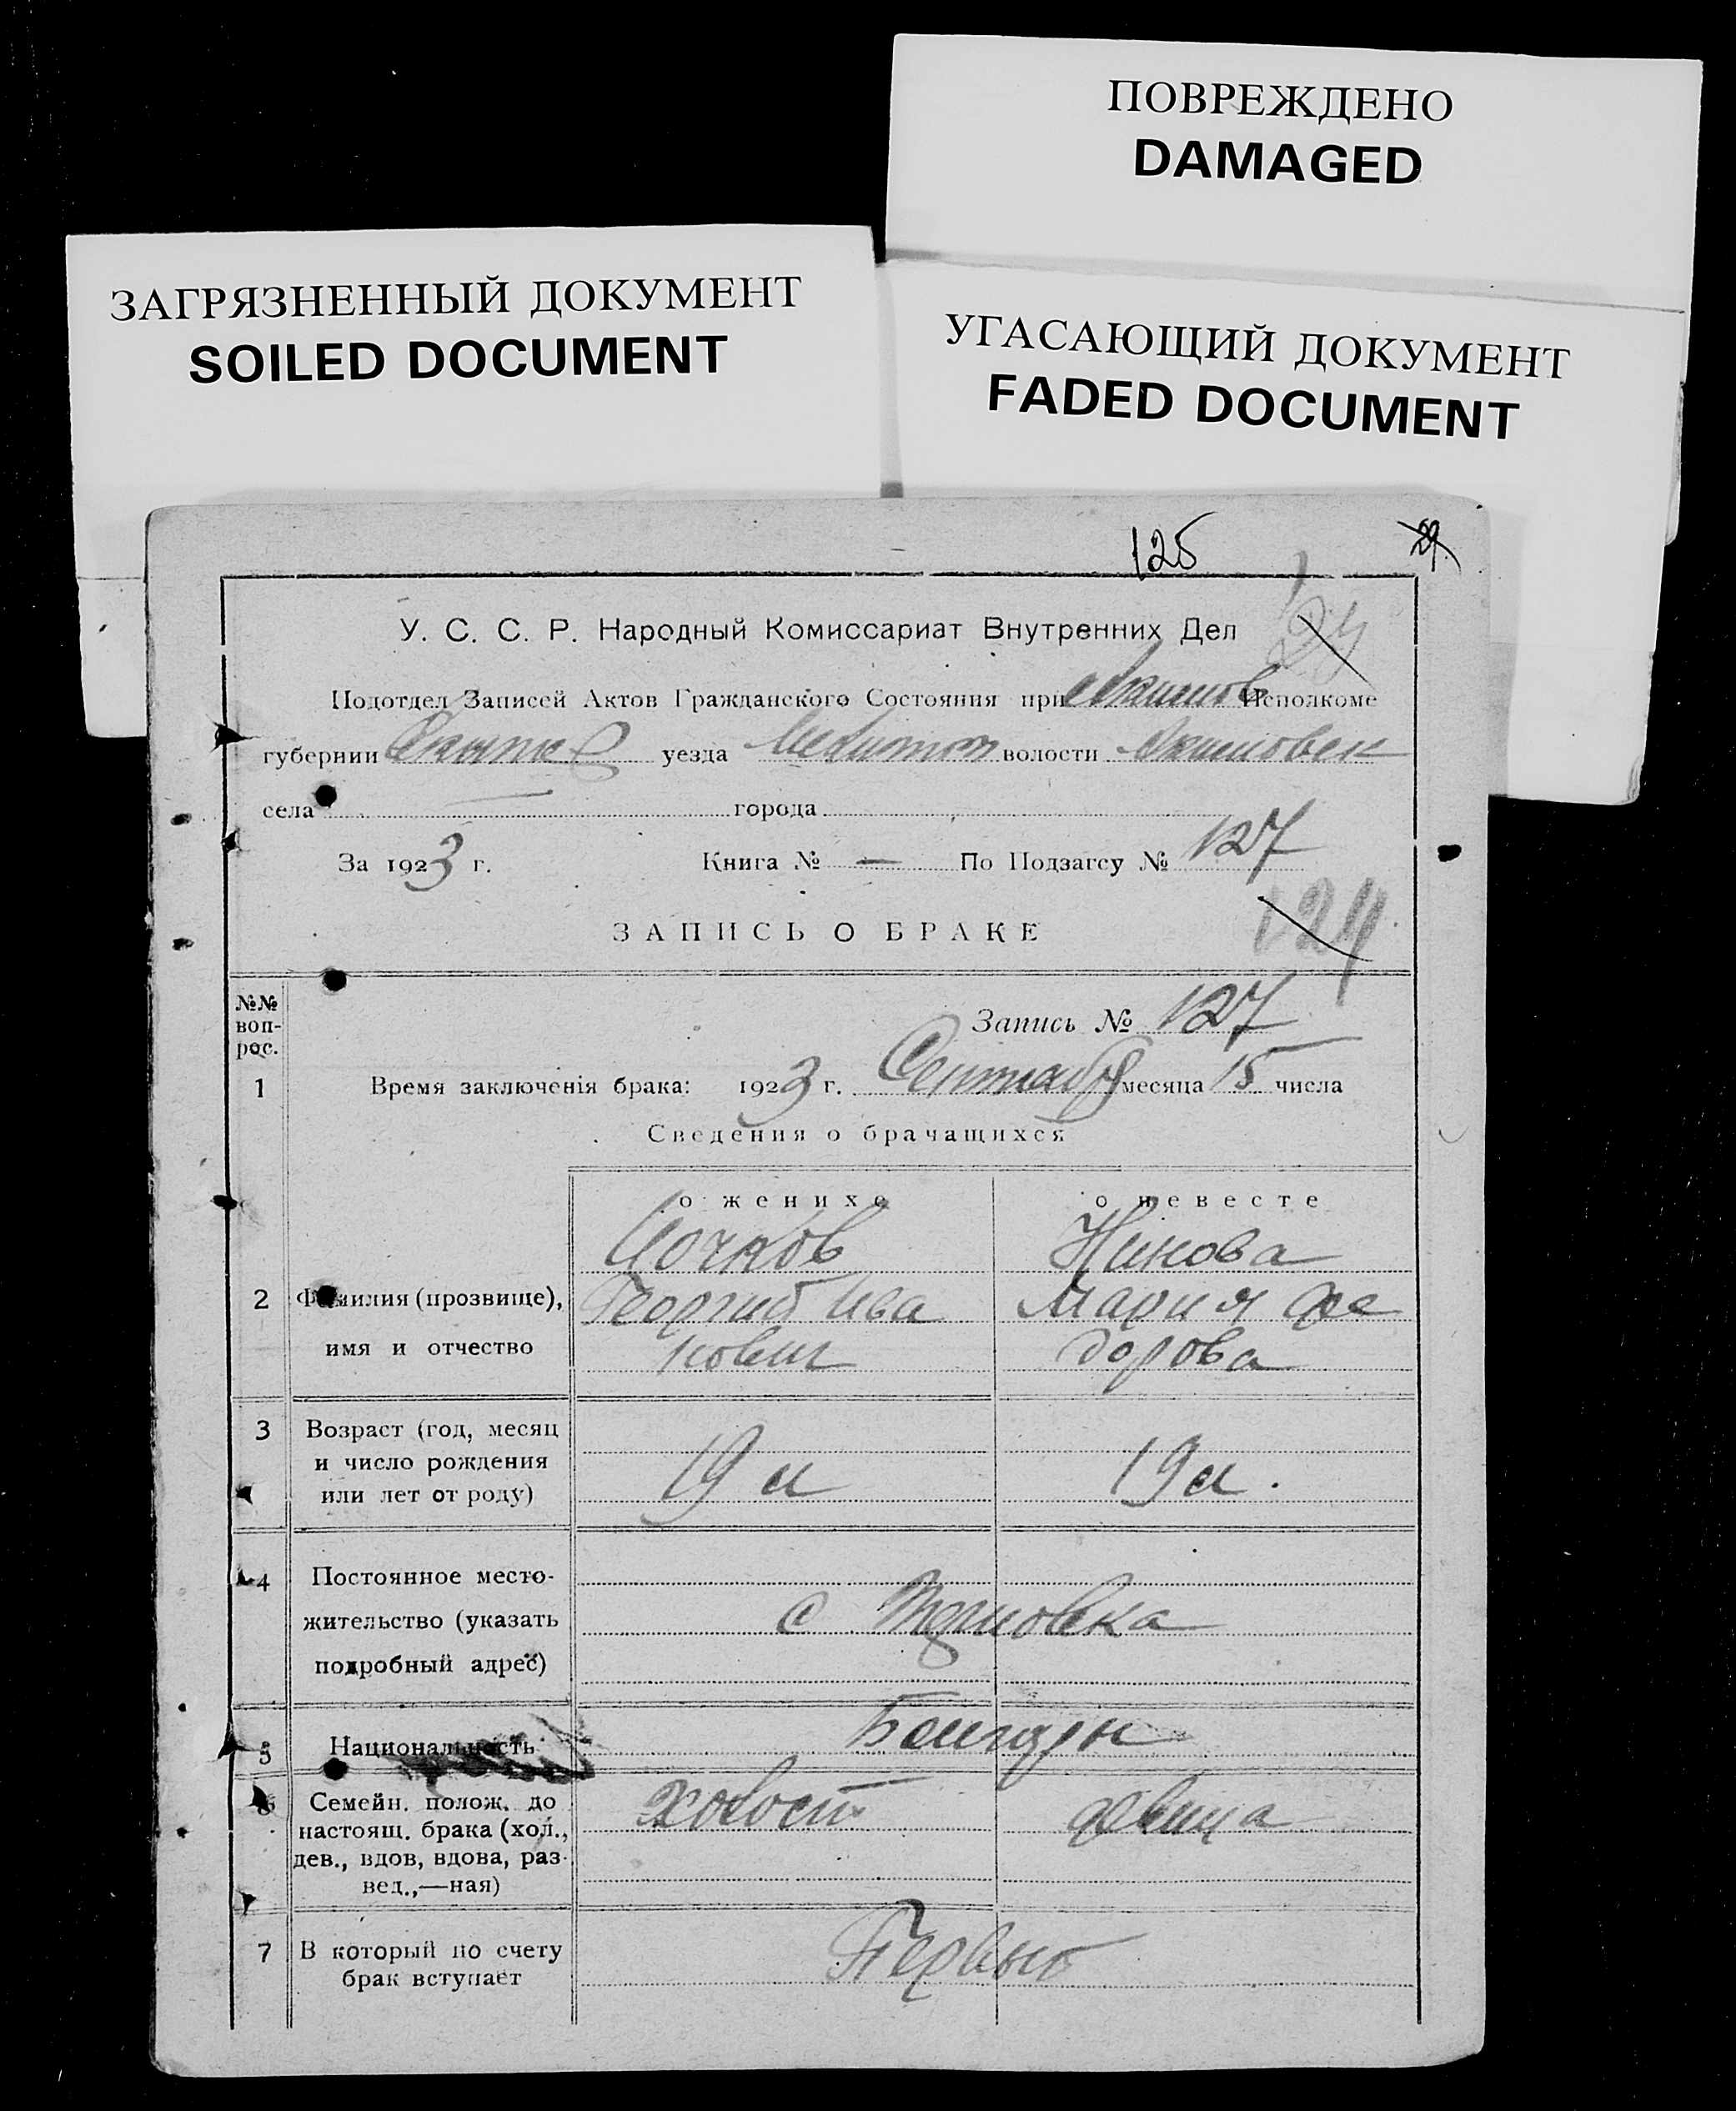 ПОВРЕЖДЕНО
DAMAGED
ЗАГРЯЗНЕННЫЙ ДОКУМЕНТ
SOILED DOCUMENT
УГАСАЮЩИЙ ДОКУМЕНТ
FADED DOCUMENT
125
29
У. С. С. Р. Народный Комиссариат Внутренних Дел
Подотдел Записей Актов Гражданского Состояния при Акимов Исполкоме
губернии уезда Мелитоп волости Акимовск
села города
За 1923 г. Книга № — По Подзагсу № 127
ЗАПИСЬ О БРАКЕ
124
№№ воп-рос.
Запись № 127
1 Время заключенія брака: 1923 г. Сентября месяца 15 числа
Сведения о брачащихся
о женихе о невесте
Нинова
2 Фамилия (прозвище), Георгий Ива Мария Фе
имя и отчество нович дорова
3 Возраст (год, месяц
и число рождения 19 л 19 л.
или лет от роду)
4 Постоянное место-
жительство (указать с
подробный адрес)
5 Национальность
6 Семейн. полож. до холост девица
настоящ. брака (хол.,
дев., вдов, вдова, раз-
вед.,—ная)
7 В который по счету Первый
брак вступает